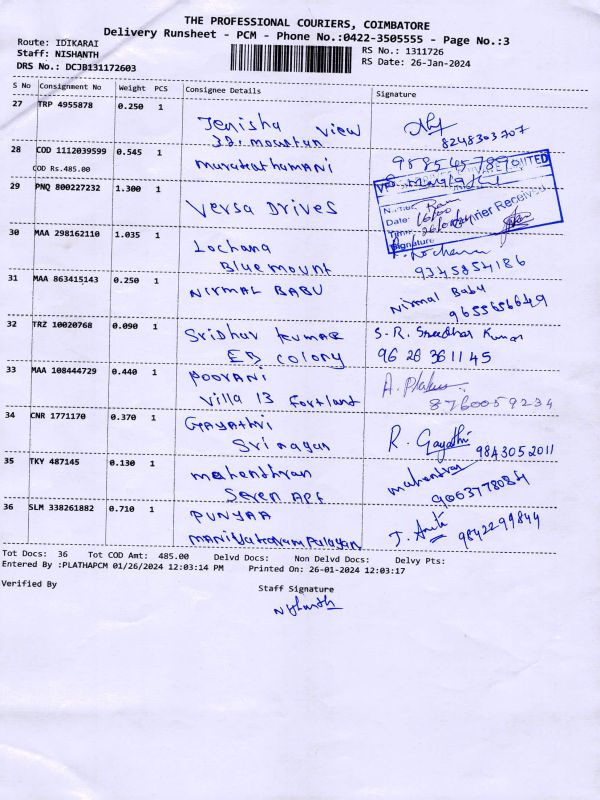 THE PROFESSIONAL COURIERS, COIMBATORE
Delivery Runsheet - PCM - Phone No.:0422-3505555 - Page No.:3
Route: IDIKARAI
Staff: NISHANTH
DRS No.: DCJB131172603
RS No.: 1311726
RS Date: 26-Jan-2024
S No Consignment No Weight PCS Consignee Details Signature
27 TRP 4955878 0.250 1
Jenisha View
8248303707
28 COD 1112039599 0.545 1
COD Rs.485.00
9585457890
29 PNQ 800227232 1.300 1 Versa Drives
Date:
Courier Received
Signature
30 MAA 298162110 1.035 1
Lochana
Bluemount
9345854186
31 MAA 863415143 0.250 1 NIRMAL BABU
Nirmal Babu
9655656649
32 TRZ 10020768 0.090 1 Sridhar kumar S.R. Sreedhar Kumar
EB colony 96 26 36 11 45
33 MAA 108444729 0.440 1 POORANI
Villa 13 Fortland 8760059234
34 CNR 1771170 0.370 1 GAYATHRI
Sri nagar R. Gayathri 9843052011
35 TKY 487145 0.130 1 mahendhran mahendran
Seven APT 9063778084
36 SLM 338261882 0.710 1 PUNYAA
9842299844
Tot Docs: 36 Tot COD Amt: 485.00 Delvd Docs: Non Delvd Docs: Delvy Pts:
Entered By :PLATHAPCM 01/26/2024 12:03:14 PM Printed On: 26-01-2024 12:03:17
Verified By
Staff Signature